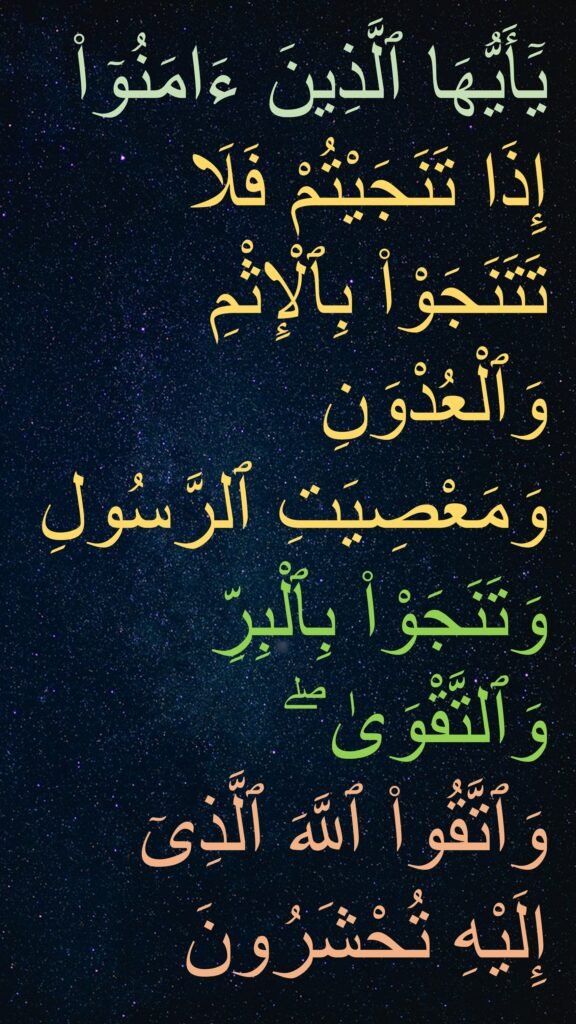 يَٓأَيُّهَا ٱلَّذِينَ ءَامَنُوٓا۟
إِذَا تَنَجَيْتُمْ فَلَا
تَتَنَجَوْا۟ بِٱلْإِثْمِ
وَٱلْعُدْوَنِ
وَمَعْصِيَتِ ٱلرَّسُولِ
وَتَنَجَوْا۟ بِٱلْبِرِّ
وَٱلتَّقْوَىٰ ۖ
وَٱتَّقُوا۟ ٱللَّهَ ٱلَّذِىٓ
إِلَيْهِ تُحْشَرُونَ